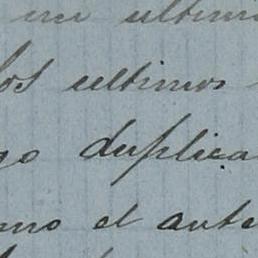 mi ultim
los ultimos
go duplica
mo el ante